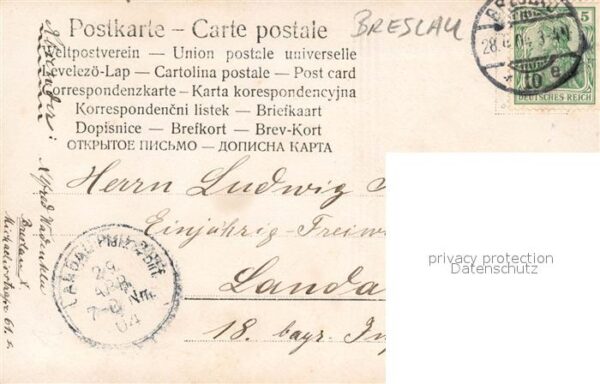 Postkarte – Carte postale
Weltpostverein — Union postale universelle
Levelező-Lap — Cartolina postale — Post card
Correspondenzkarte — Karta korespondencyjna
Korrespondenční listek — Briefkaart
Dopisnice — Brefkort — Brev-Kort
ОТКРЫТОЕ ПИСЬМО — ДОПИСНА КАРТА
BRESLAU
BRESLAU
28.
10 e
5
DEUTSCHES REICH
Herrn Ludwig
Einjährig-Freiw
Landa
18. bayr. In
LANDAU
29
7-8 Nm
04
Absender:
Alfred
Breslau X
61.
privacy protection
Datenschutz